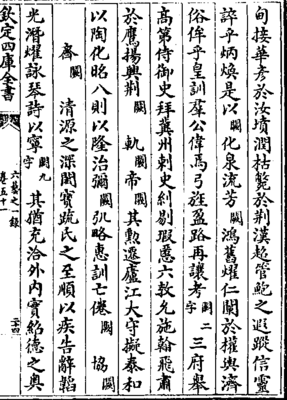 旬接華彥於汝墳潤枯斃於荆漢超管鮑之遐蹤信靈
誶乎炳煥是以闕化泉流芳闕鴻舊燿仁闕於權輿濟
俗侔乎皇訓羣公偉焉弓旌盈路再讓考闕二字三府舉
高第侍御史拜冀州刺史糾剔瑕慝六教允施翰飛肅
於鷹揚興荆闕軌闕帝闕其勲遷廬江大守擬泰和
以陶化昭八則以隆治彌闕孔略惠訓亡倦闕協闕
齋闕清源之深閫寳疏氏之至順以疾告辭韜
光潛燿詠琴詩以寧闕九字其猶充洽外内寳紹德之奥
欽定四庫全書
六藝之一録
卷五十一
二十四